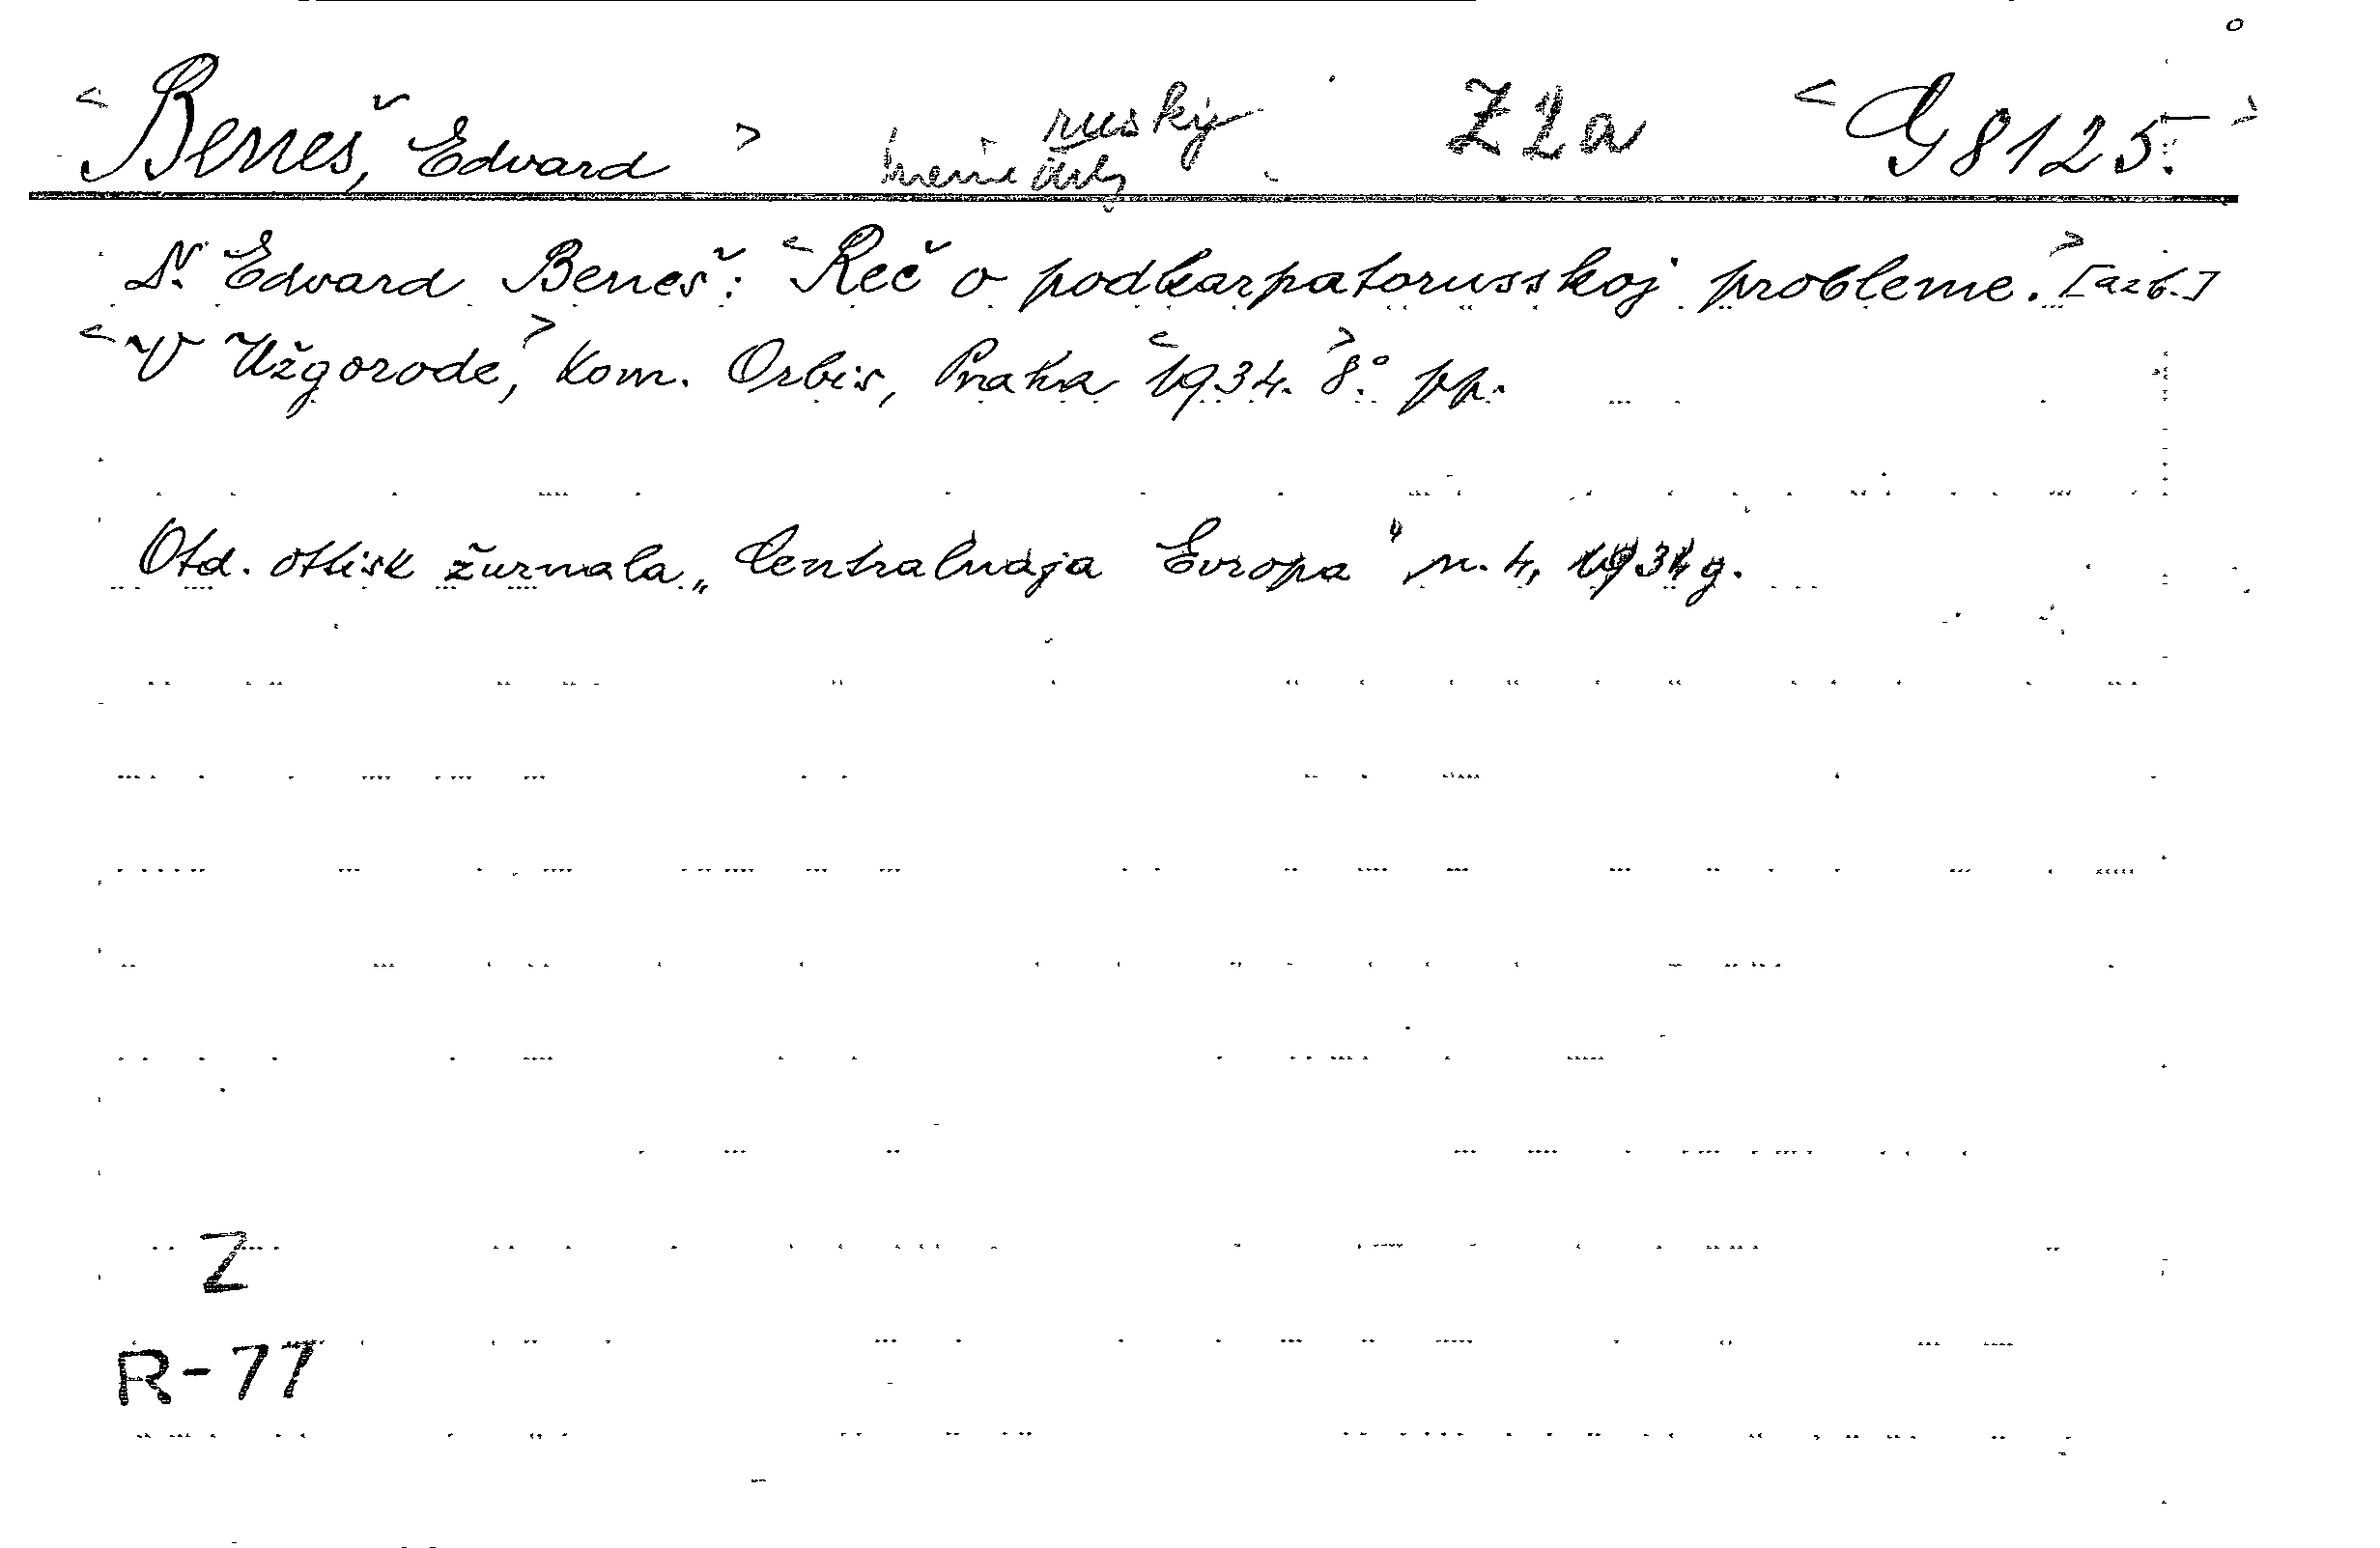 <Beneš, Edvard> rusky Z2a <G 8125.>
Dr. Edvard Beneš: <Reč o podkarpatorusskoj probleme.> [azb.]
<V Užgorode,> kom. Orbis, Praha <1934.> 8.° pp.
Otd. ottisk žurnala „Centralnaja Evropa" n. 4, 1934 g.
Z
R-77